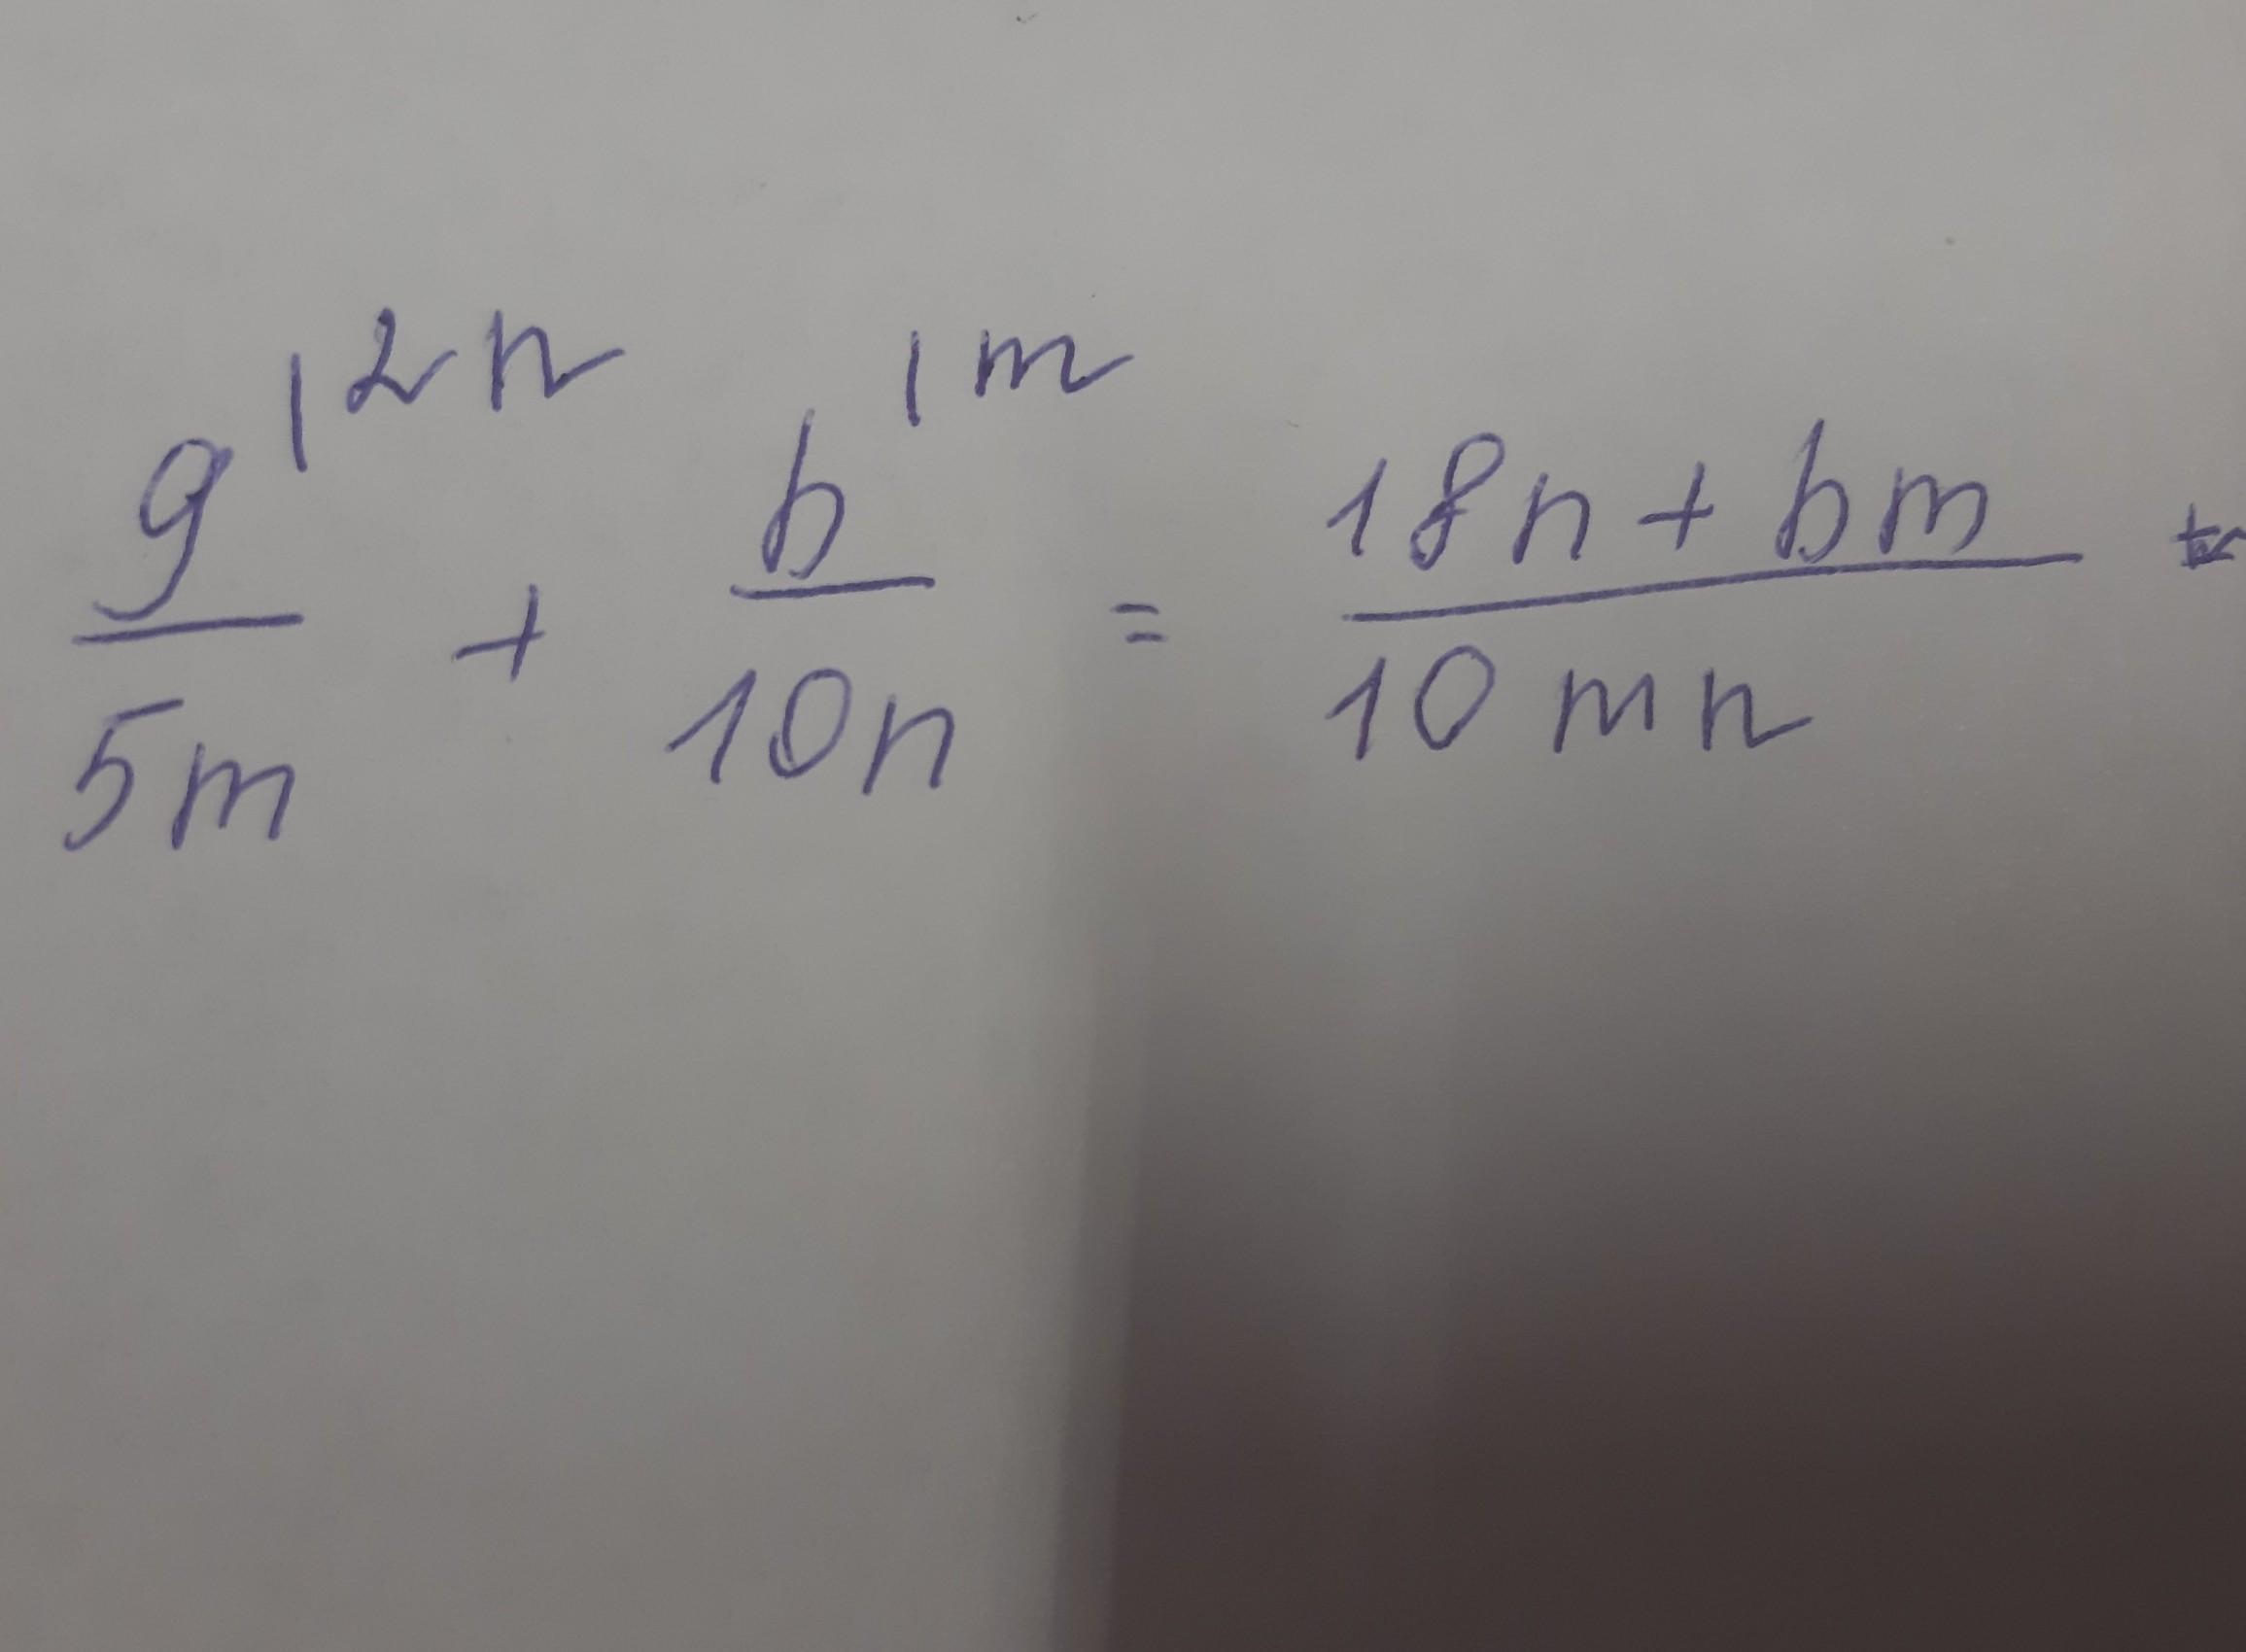 9/5m |2n + b/10n |m = 18n + bm / 10mn